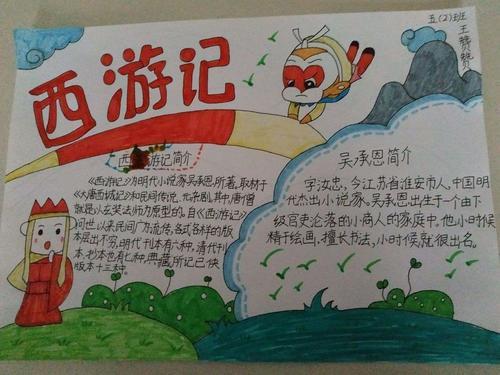 五(2)班
王赞赞
西游记
西游记简介
《西游记》为明代小说家吴承恩所著,取材于
《大唐西域记》和民间传说、元杂剧,其中唐僧
就是以玄奘法师为原型的。自《西游记》
问世以来民间广为流传,各式各样的版
本层出不穷,明代刊本有六种,清代刊
本、抄本也有七种,典藏所记已佚
版本十三种。
吴承恩简介
字汝忠,今江苏省淮安市人,中国明
代杰出小说家,吴承恩出生于一个由下
级官吏沦落的小商人的家庭中。他小时候
精于绘画,擅长书法,小时候就很出名。